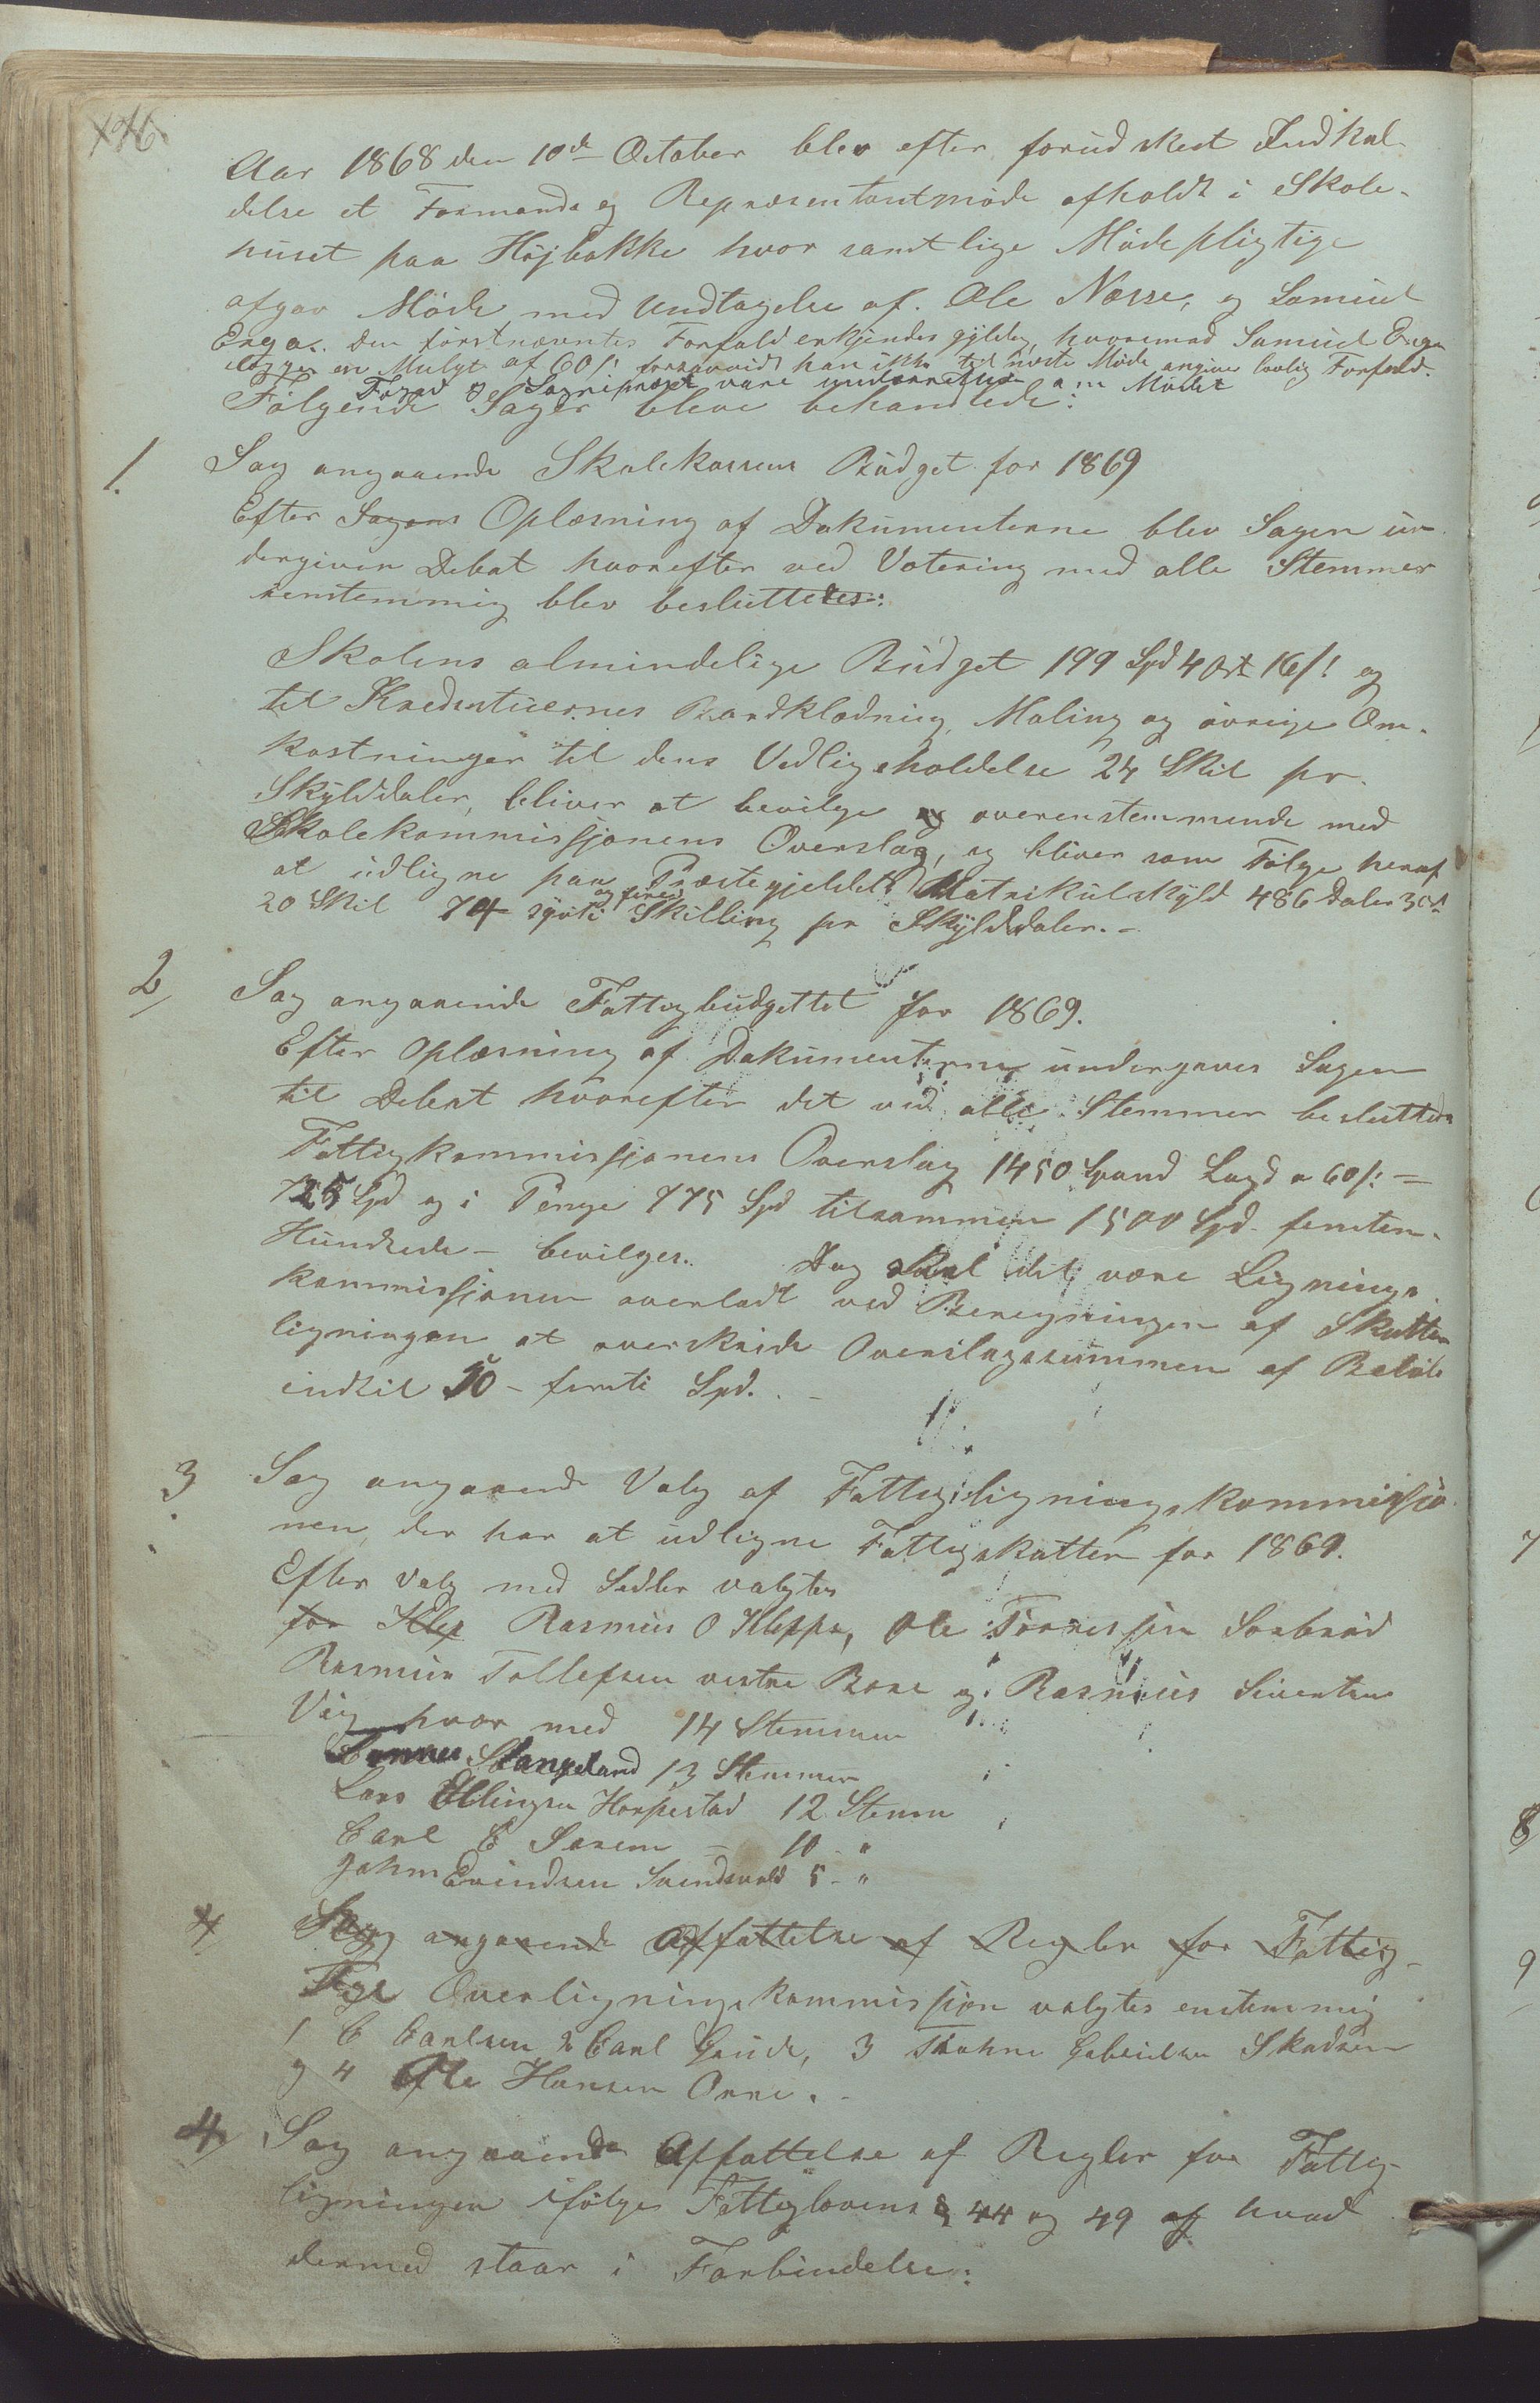 Aar 1868 den 10de October blev efter forud skeet Indkal-
delse et Formands og Repræsentantmøde afholdt i Skole-
huset paa Højbakke hvor samtlige Mødepligtige
afgav Møde med Undtagelse af Ole Næsse, og Samuel
Erga. den førstnævntes Forfald erkjendes gyldig, hvoremod Samuel Erga
ilægges en Mulgt af 60 s. forsaavidt han ikke til næste Møde angiver lovlig Forfald.
Foged og Sogneprest vare underrettet om Mødet
Følgende Sager bleve behandlede:
1. Sag angaaende Skolekassens Budget for 1869
Efter Sagens Oplæsning af Dokumenterne blev Sagen un-
dergiven Debat hvorefter ved Votering med alle Stemmer
eenstemmig blev besluttedes:
Skolens almindelige Budget 199 Spd 4 Ort 16 s. og
til Bordklædning, Maling og øvrige Om-
kostninger til dens Vedligeholdelse 24 Skil pr.
Skylddaler, bliver at bevilge og overenstemmende med
Skolekommissjonens Overslag, og bliver som Følge heraf
at udligne paa Præstegjeldets Matrikulskyld 486 Daler 3 Ort
20 Skil 74 sytti og fire Skilling pr Skylddaler.-
2, Sag angaaende Fattigbudgettet for 1869.
Efter Oplæsning af Dokumenterne undergaves Sagen
til Debat hvorefter det ved alle Stemmer besluttede
Fattigkommissjonens Overslag 1450 Spand Lagd a 60 s. =
725 Spd og i Penge 775 Spd tilsammen 1500 Spd femten-
Hundrede - bevilges. Dog skal det være Lignings-
kommissjonen overladt ved Beregningen af Skatte
ligningen at overskride Overslagssummen af Beløb
indtil 50 - femti Spd. -
3. Sag angaaende Valg af Fattigligningskommissjo
nen, der har at udligne Fattigskatten for 1869.
Efter valg med Sedler valgtes
for Klep Rasmus O Kleppe, Ole Tørressen Sørbrød
Rasmus Tollefsen vestre Bore og Rasmus Sivertsen
Vig hver med 14 Stemmer
Stangeland 13 Stemmer
Lars Ellingsen Horpestad 12 Stemm
Carl E Soxem - 10 - "
John Eivindsen Svendsvold 5 - "
4 Sag angaaende Affattelse af Regler for Fattig-
Til Overligningskommissjon valgtes enstemmig
1 C Carlsen 2 Carl Grude, 3 Gabrielsen Skadsem
og 4 Ole Hansen Orre. -
4, Sag angaaende Affattelse af Regler for Fattig-
ligningen ifølge Fattiglovens § 44 og 49 af hvad
dermed staar i Forbindelse: